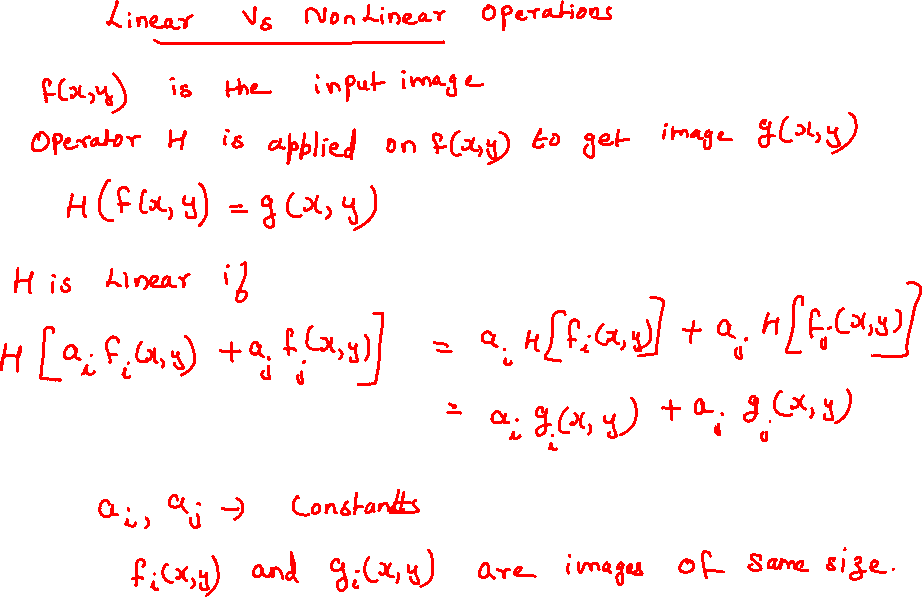 Linear Vs Non Linear Operations
f(x,y) is the input image
Operator H is applied on f(x,y) to get image g(x,y)
H(f(x,y) = g(x,y)
H is Linear if
H[a_i f_i(x,y) + a_j f_j(x,y)] = a_i H[f_i(x,y)] + a_j H[f_j(x,y)]
= a_i g_i(x,y) + a_j g_j(x,y)
a_i, a_j → Constants
f_i(x,y) and g_i(x,y) are images of same size.